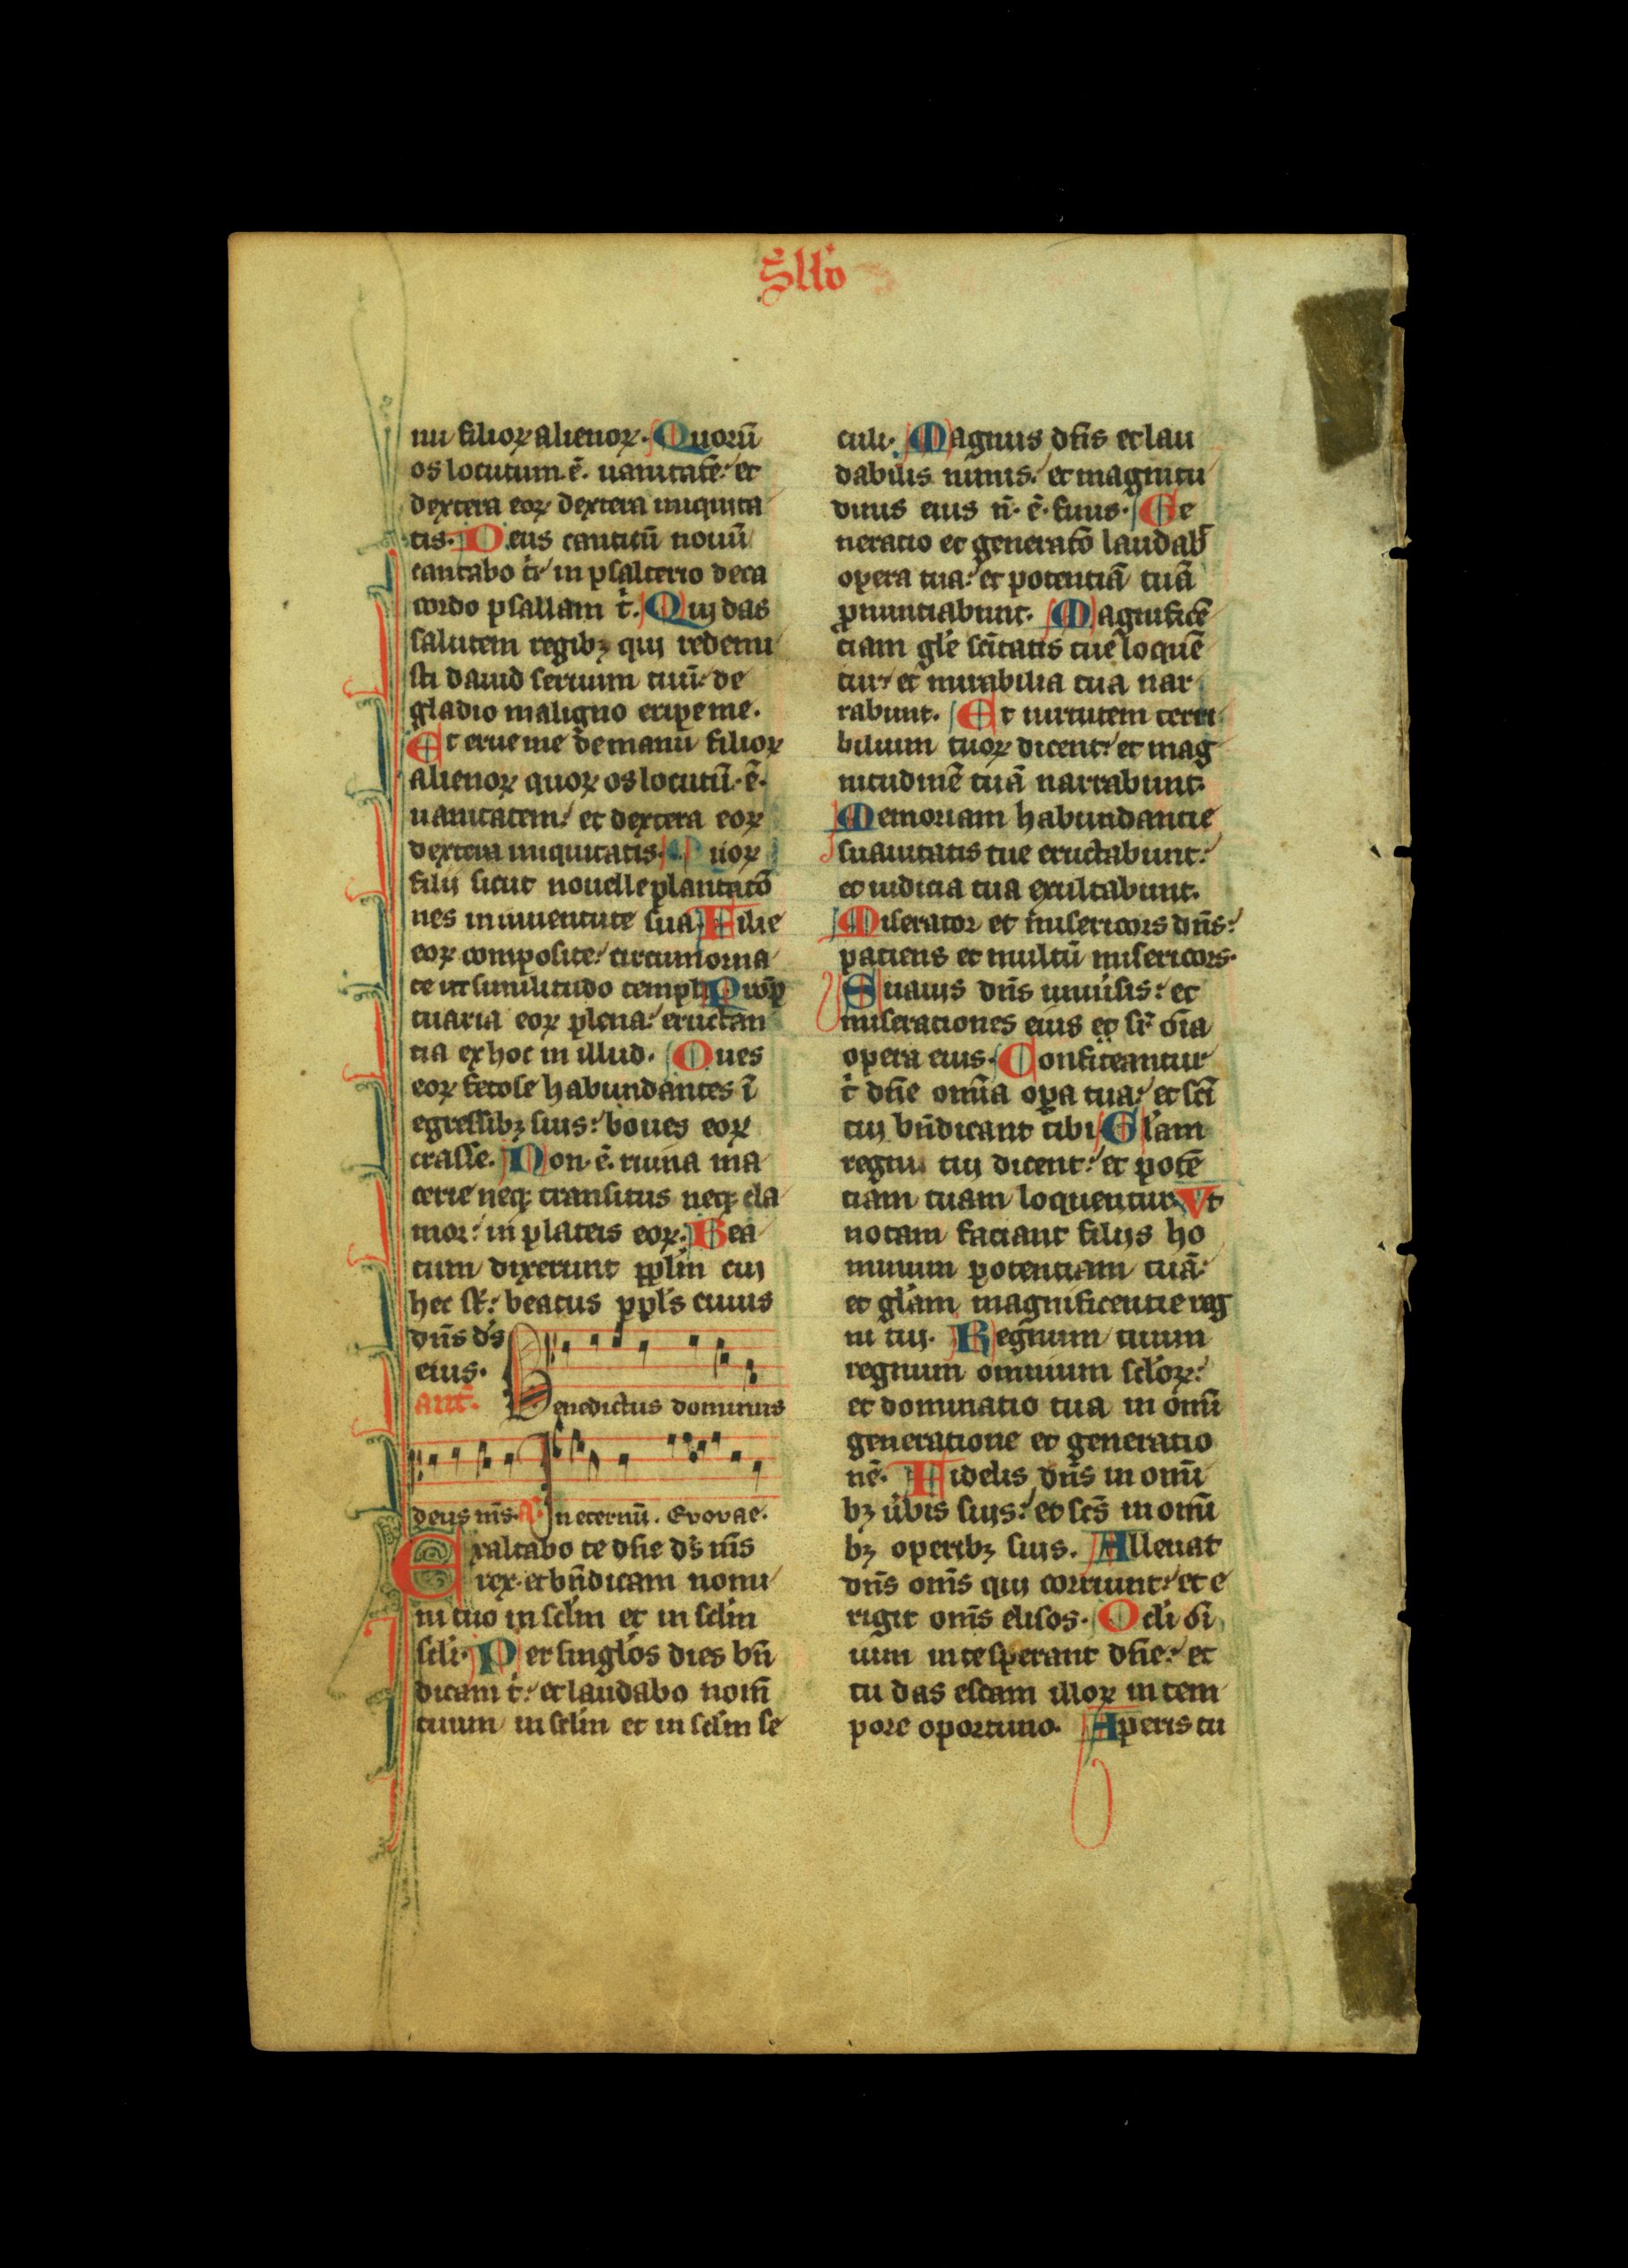 Sllo
nu filioꝝ alienoꝝ. Quorū
os locutum. ē. uanitatē: et
dextera eoꝝ dextera iniquita
tis. Deus canticū nouū
cantabo t̄: in psalterio deca
cordo psallam t̄. Qui das
salutem regibꝫ qui redemi
sti dauid seruum tuū: de
gladio maligno eripe me.
Et erue me de manu filioꝝ
alienoꝝ quoꝝ os locutū. ē.
uanitatem: et dextera eoꝝ
dextera iniquitatis. Quoꝝ
filij sicut nouelle plantatō
nes in iuuentute sua. Filie
eoꝝ composite: circumorna
te ut similitudo templi. Prōp
tuaria eoꝝ plena: eructan
tia ex hoc in illud. Oues
eoꝝ fetose habundantes ī
egressibꝫ suis: boues eoꝝ
crasse. Non. ē. ruina ma
cerie neqꝫ transitus neqꝫ cla
mor: in plateis eoꝝ. Bea
tum dixerunt pplm̄ cui
hec st̄: beatus ppl̄s cuius
dn̄s ds̄
eius.
ant̄.
Benedictus dominus
deus nr̄s. In eternū. Evovae.
Exaltabo te dn̄e ds̄ mīs
rex. et bn̄dicam nomi
ni tuo in sclm̄ et in sclm̄
sclī. Per singlos dies bn̄
dicam t̄: et laudabo nom̄
tuum in sclm̄ et in sclm̄ se
culi. Magnus dn̄s et lau
dabilis nimis: et magnitu
dinis eius n̄. ē. finis. Ge
neratio et generatō laudab̄
opera tua: et potentiā tuā
ꝓnuntiabunt. Magnificē
tiam gl̄e sc̄itatis tue loquē
tur: et mirabilia tua nar
rabunt. Et uirtutem terri
bilium tuoꝝ dicent: et mag
nitudinē tuā narrabunt.
Memoriam habundantie
suauitatis tue eructabunt:
et iudicia tua exultabunt.
Miserator et misericors dn̄s:
patiens et multū misericors.
Suauis dn̄s uniūsis: et
miserationes eius ꝯ sr̄ oīa
opera eius. Confiteantur
t̄ dn̄e omīa opa tua: et sc̄i
tui bn̄dicant tibi. Gl̄am
regni tui dicent: et potē
tiam tuam loquentur. Vt
notam faciant filijs ho
minum potentiam tuā:
et gl̄am magnificentie reg
ni tui. Regnum tuum
regnum omnium scl̄oꝝ:
et dominatio tua in omī
generatione et generatio
nē. Fidelis dn̄s in omī
bꝫ ūbis suis: et sc̄s in omī
bꝫ operibꝫ suis. Alleuat
dn̄s om̄s qui corruunt: et e
rigit om̄s elisos. Oc̄li oī
ium in te sperant dn̄e: et
tu das escam illoꝝ in tem
pore oportuno. Aperis tu